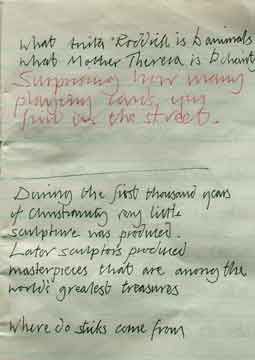 What Anita Roddick is to animals
what Mother Theresa is to charity
Surprising how many
playing cards you
find in the street.
During the first thousand years
of Christianity very little
sculpture was produced.
Later sculptors produced
masterpieces that are among the
world's greatest treasures
Where do sticks come from